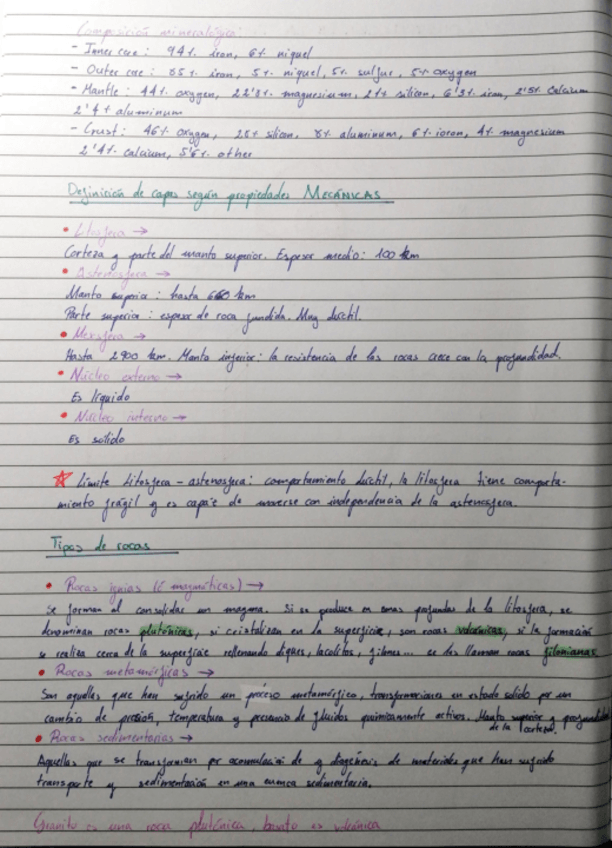 Composición mineralógica:
- Inner core: 94%. iron, 6%. niquel
- Outer core: 85%. iron, 5%. niquel, 5%. sulfur, 5% oxygen
- Mantle: 44%. oxygen, 22'8%. magnesium, 21% silicon, 6'3%. iron, 2'5%. calcium
2'4% aluminum
- Crust: 46%. oxygen, 28% silicon, 8% aluminum, 6%. ioron, 4%. magnesium
2'4%. calcium, 5'6%. other
Definición de capas según propiedades MECÁNICAS
• Litosfera →
Corteza y parte del manto superior. Espesor medio: 100 km
• Astenosfera →
Manto superior: hasta 660 km
Parte superior: espesor de roca fundida. Muy dúctil.
• Mesosfera →
Hasta 2900 km. Manto inferior: la resistencia de las rocas crece con la profundidad.
• Núcleo externo →
Es líquido
• Núcleo interno →
Es sólido
☆ Límite Litosfera - astenosfera: comportamiento dúctil, la litosfera tiene comporta-
miento frágil y es capaz de moverse con independencia de la astenosfera.
Tipos de rocas
• Rocas ígnias (ó magmáticas) →
Se forman al consolidar un magma. Si se produce en zonas profundas de la litosfera, se
denominan rocas plutónicas, si cristalizan en la superficie, son rocas volcánicas, si la formación
se realiza cerca de la superficie rellenando diques, lacolitos, filones... se les llaman rocas filonianas
• Rocas metamórficas →
Son aquellas que han sufrido un proceso metamórfico, transformaciones en estado sólido por un
cambio de presión, temperatura y presencia de fluidos químicamente activos. Manto superior y profundidad
de la corteza.
• Rocas sedimentarias →
Aquellas que se transforman por acumulación de y diagénesis de materiales que han sufrido
transporte y sedimentación en una cuenca sedimentaria.
Granito es una roca plutónica, basalto es volcánica